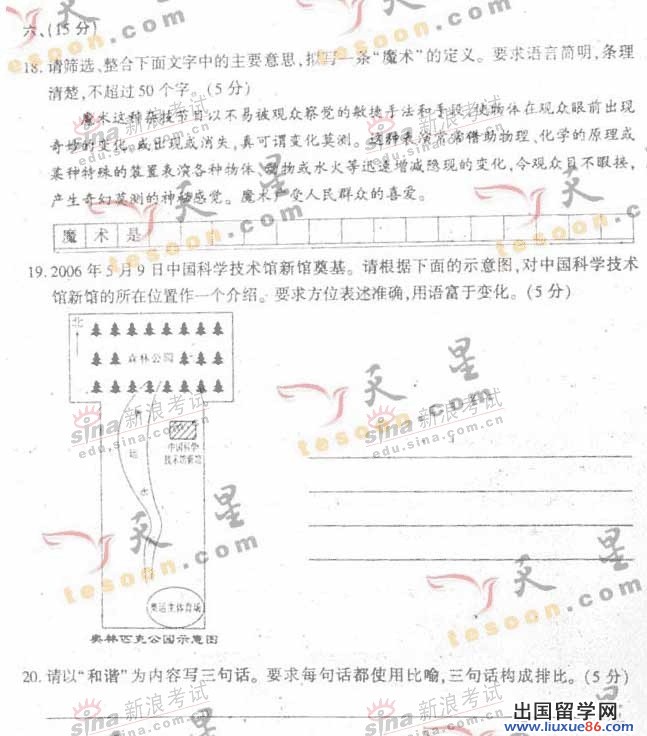 六、(15分)
18. 请筛选、整合下面文字中的主要意思,拟写一条“魔术”的定义。要求语言简明,条理
清楚,不超过50个字。(5分)
魔术这种杂技节目以不易被观众察觉的敏捷手法和手段,使物体在观众眼前出现
奇妙的变化,或出现或消失,真可谓变化莫测。这种表演常常借助物理、化学的原理或
某种特殊的装置表演各种物体、动物或水火等迅速增减隐现的变化,令观众目不暇接,
产生奇幻莫测的神秘感觉。魔术广受人民群众的喜爱。
魔术是
19. 2006年5月9日中国科学技术馆新馆奠基。请根据下面的示意图,对中国科学技术
馆新馆的所在位置作一个介绍。要求方位表述准确,用语富于变化。(5分)
北
森林公园
奥
运
水
中国科学
技术馆新馆
奥运主体育场
奥林匹克公园示意图
20. 请以“和谐”为内容写三句话。要求每句话都使用比喻,三句话构成排比。(5分)
sina 新浪考试
edu.sina.com.cn
天星
tesoon.com
出国留学网
www.liuxue86.com